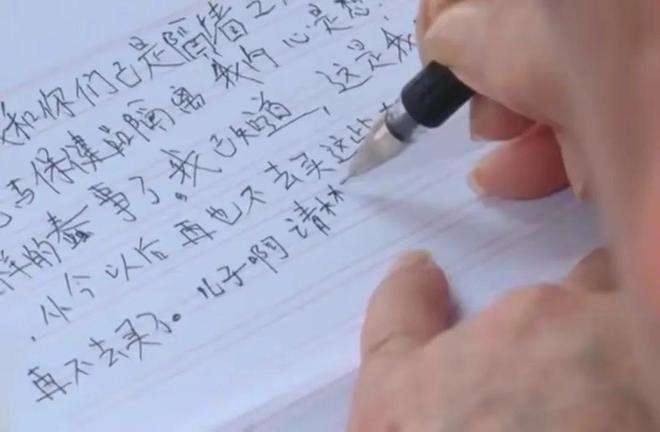 和你们已是隔墙之
与保健品隔离 我内心是想
样的蠢事了。我已知道, 这是我
.从今以后再也不去买这些
再不去买了。儿子啊 请